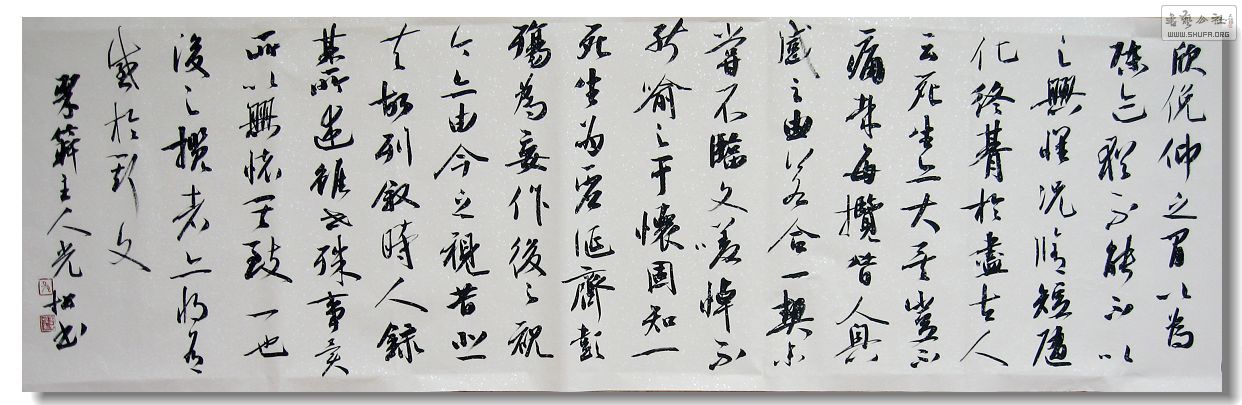 欣俛仰之間以為
陳迹猶不能不以
之興懷況脩短隨
化終朞於盡古人
云死生亦大矣豈不
痛哉每攬昔人興
感之由若合一契未
嘗不臨文嗟悼不
能喻之于懷固知一
死生為虛誕齊彭
殤為妄作後之視
今亦由今之視昔悲
夫故列敘時人錄
其所述雖世殊事異
所以興懷其致一也
後之攬者亦將有
感於斯文
主人光書
书艺公社
WWW.SHUFA.ORG